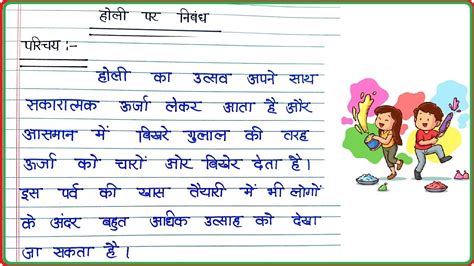 होली पर निबंध
परिचय :-
होली का उत्सव अपने साथ
सकारात्मक ऊर्जा लेकर आता है और
आसमान में बिखरे गुलाल की तरह
ऊर्जा को चारों ओर बिखेर देता है।
इस पर्व की खास तैयारी में भी लोगों
के अंदर बहुत अधिक उत्साह को देखा
जा सकता है।